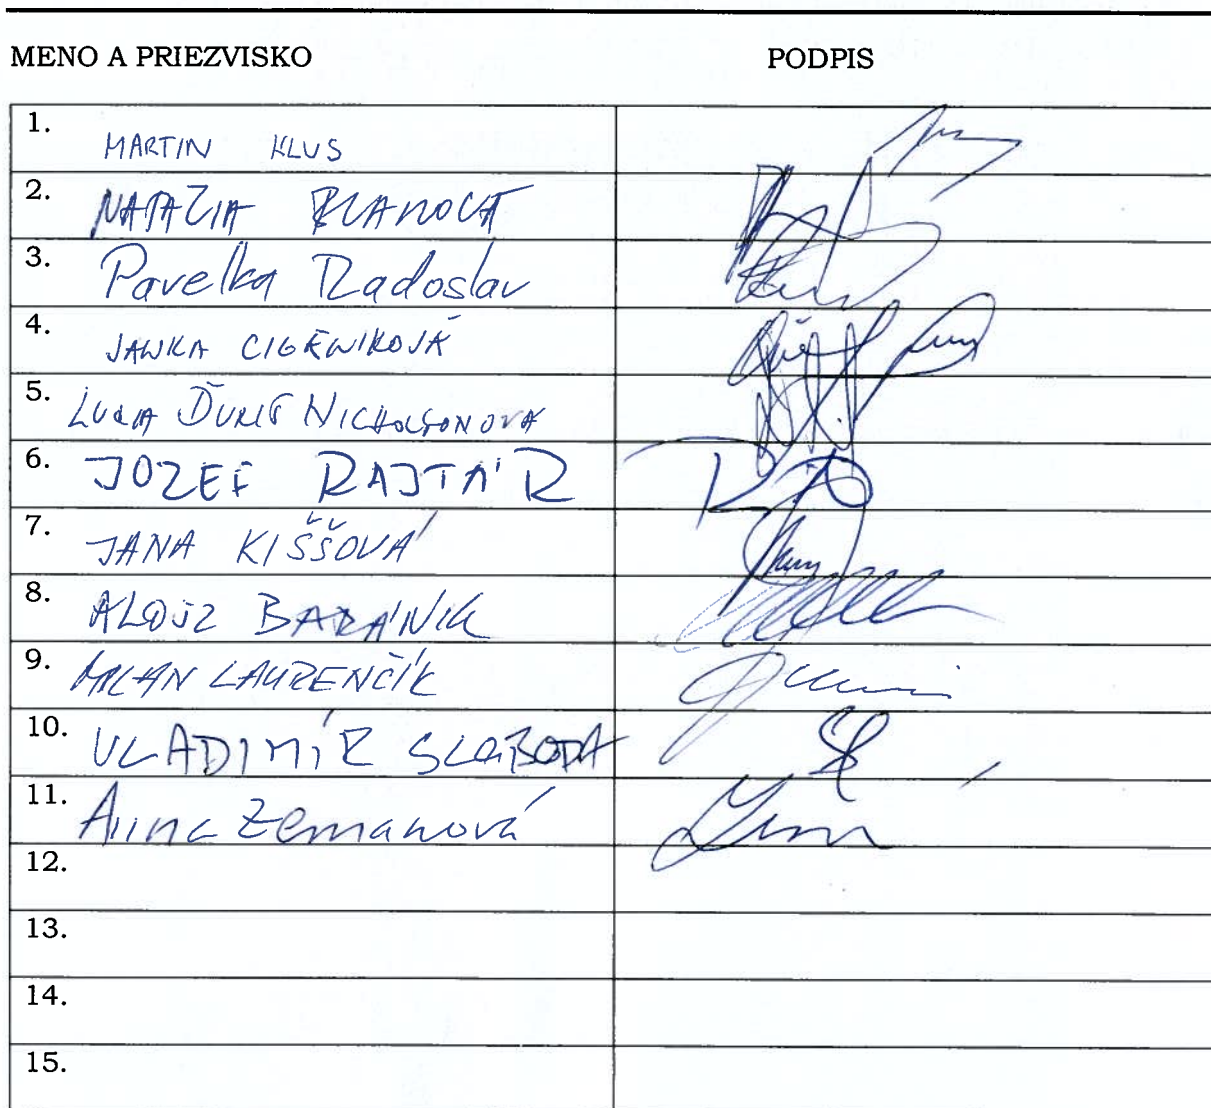 MENO A PRIEZVISKO PODPIS
1. MARTIN KLUS
2. NATÁLIA BLANOVÁ
3. Pavelka Radoslav
4. JANKA CIGÁNIKOVÁ
5. LUCIA ĎURIŠ NICHOLSONOVÁ
6. JOZEF RAJTÁR
7. JANA KIŠŠOVÁ
8. ALOJZ BARÁNIK
9. MILAN LAURENČÍK
10. VLADIMÍR SLOBODA
11. Anna Zemanová
12.
13.
14.
15.